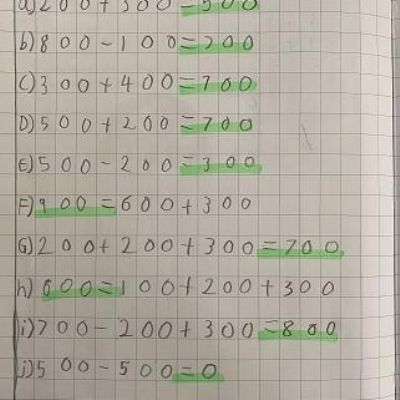 a) 200 + 300 = 500
b) 800 - 100 = 700
C) 300 + 400 = 700
D) 500 + 200 = 700
E) 500 - 200 = 300
F) 900 = 600 + 300
G) 200 + 200 + 300 = 700
h) 600 = 100 + 200 + 300
i) 700 - 200 + 300 = 800
j) 500 - 500 = 0